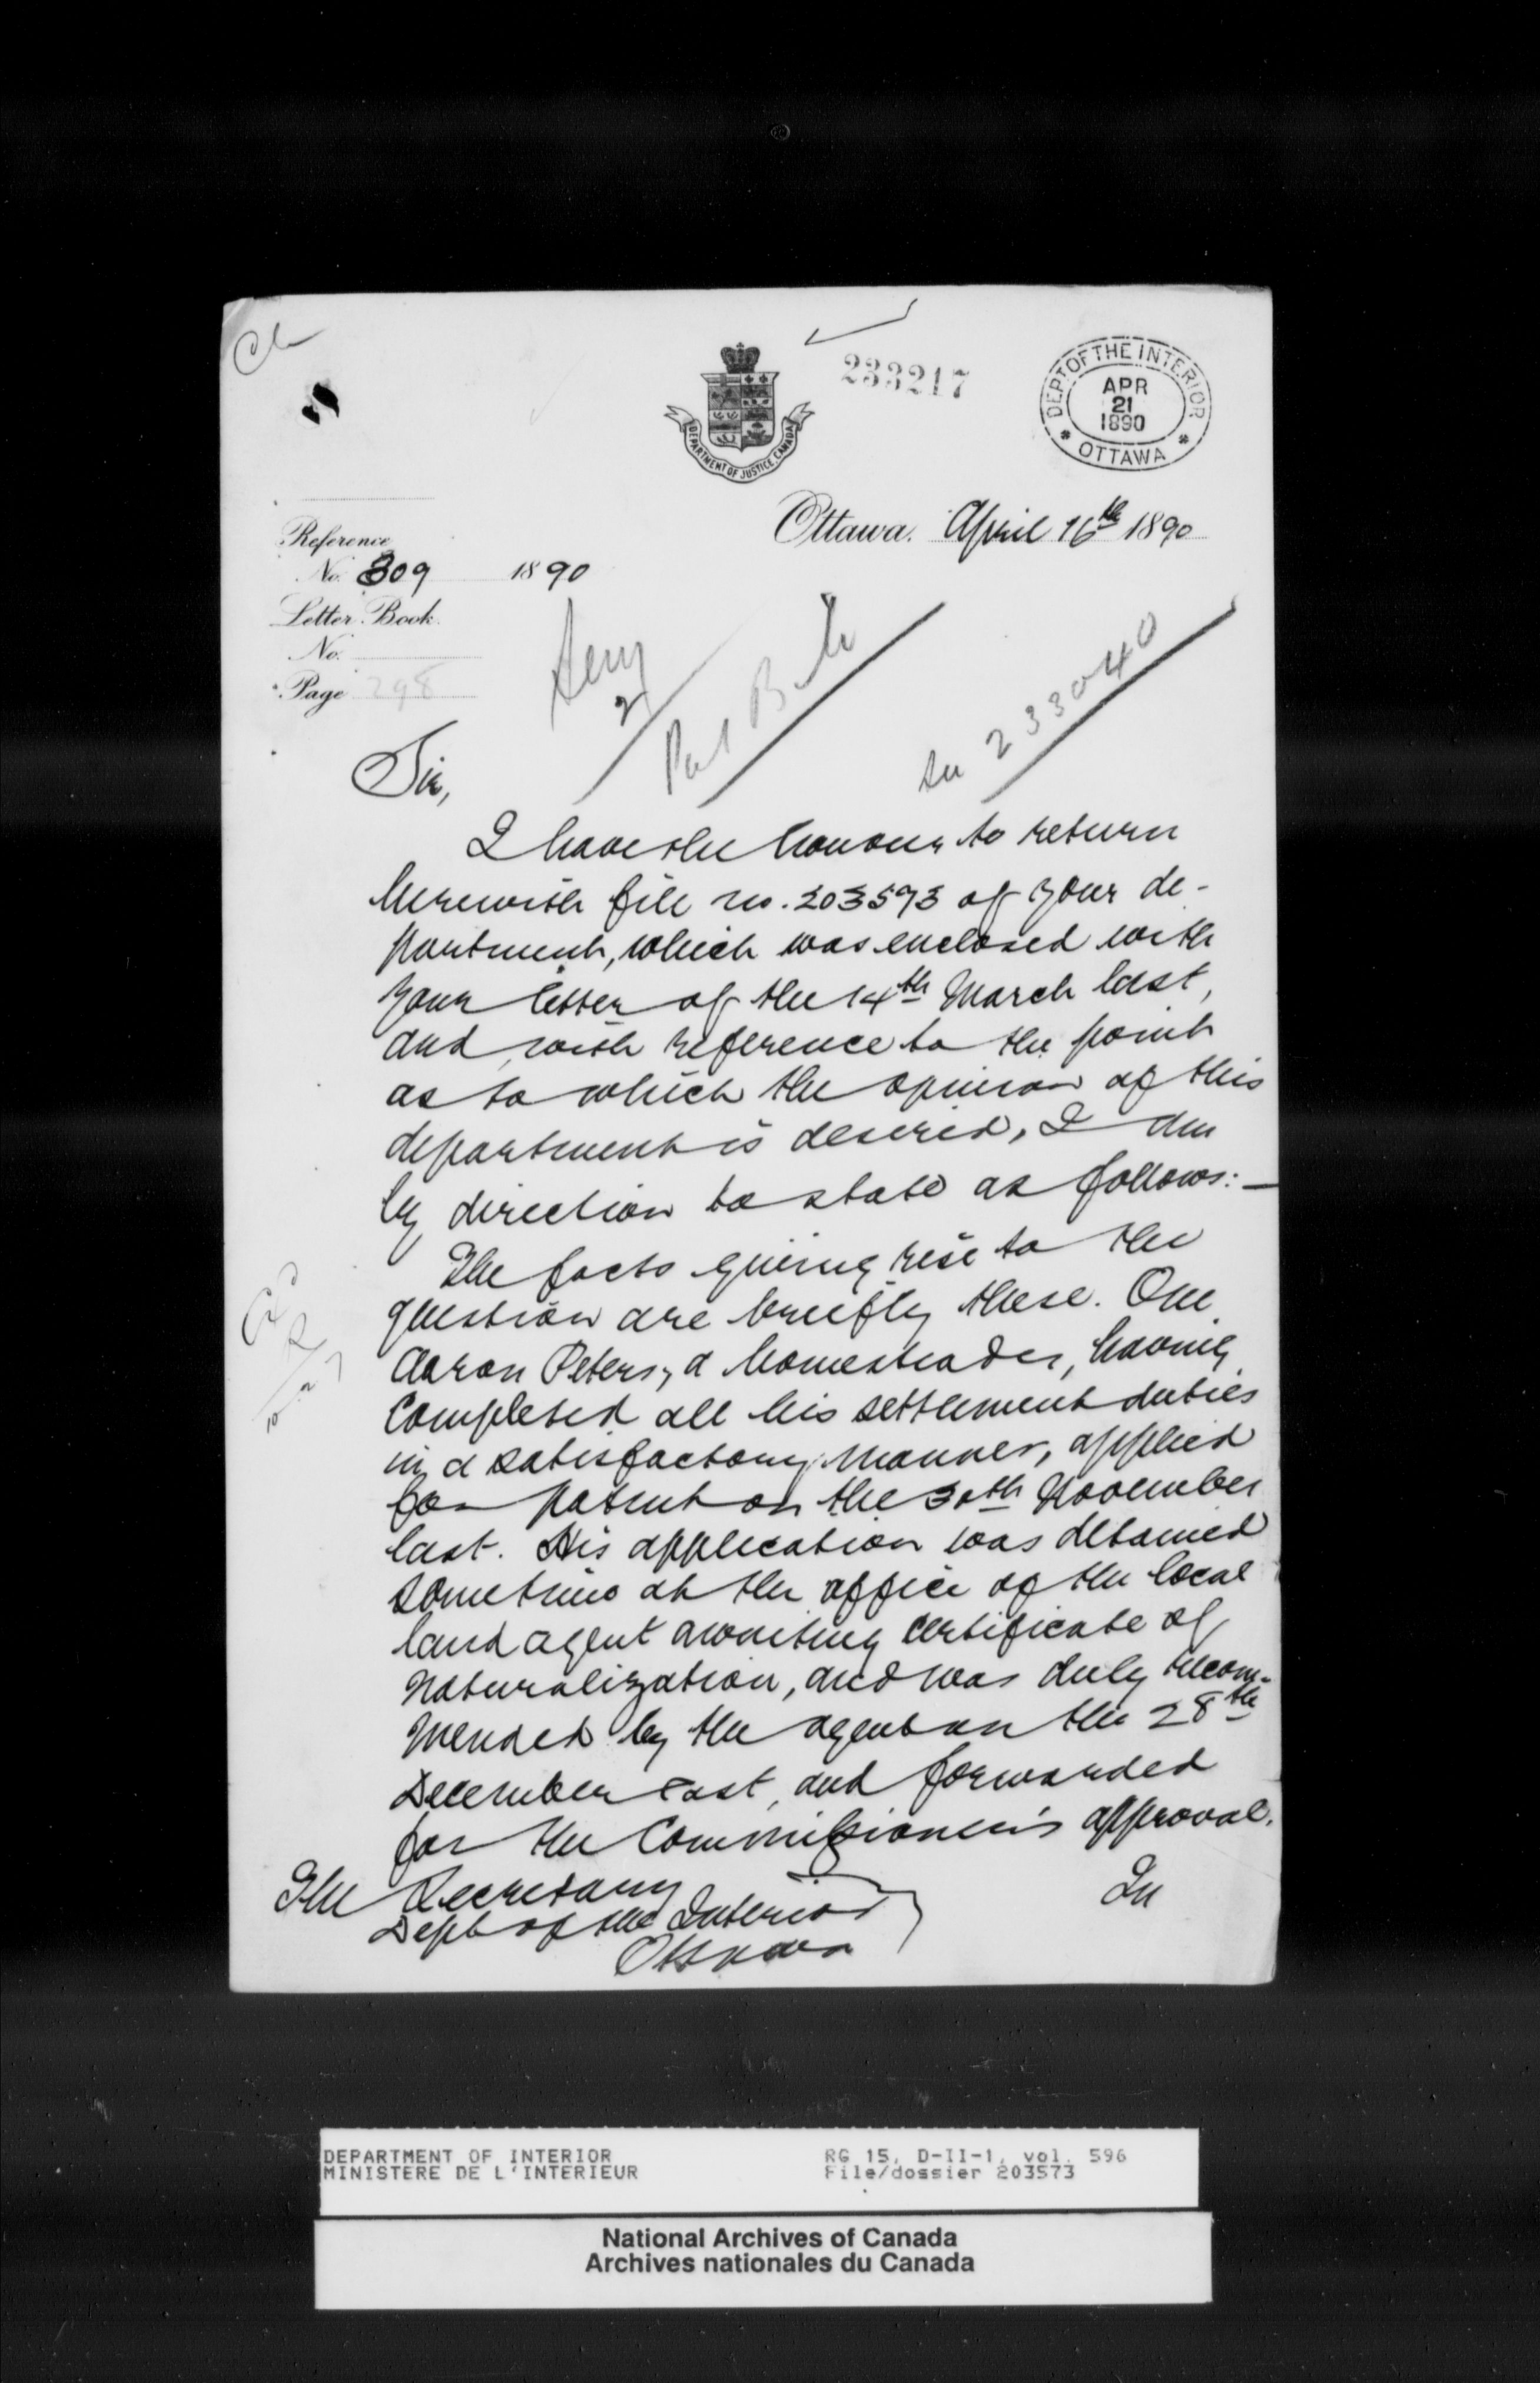 233217
DEPT OF THE INTERIOR
APR
21
1890
* OTTAWA *
DEPARTMENT OF JUSTICE, CANADA
Ottawa. April 16th 1890
Reference
No. 309 1890
Letter Book
No.
Page 298
233040
Sir,
I have the honour to return
herewith file no. 203593 of your de-
partment, which was enclosed with
your letter of the 14th March last,
and with reference to the point
as to which the opinion of this
department is desired, I am
by direction to state as follows:—
The facts giving rise to the
question are briefly these. One
Aaron Peters, a homesteader, having
completed all his settlement duties
in a satisfactory manner, applied
for patent on the 30th November
last. His application was detained
sometime at the office of the local
land agent awaiting certificate of
Naturalization, and was duly recom-
mended by the agent on the 28th
December last, and forwarded
for the Commissioner's approval.
In
The Secretary
Dept of the Interior
Ottawa
DEPARTMENT OF INTERIOR
MINISTERE DE L'INTERIEUR
RG 15, D-II-1, vol. 596
File/dossier 203573
National Archives of Canada
Archives nationales du Canada